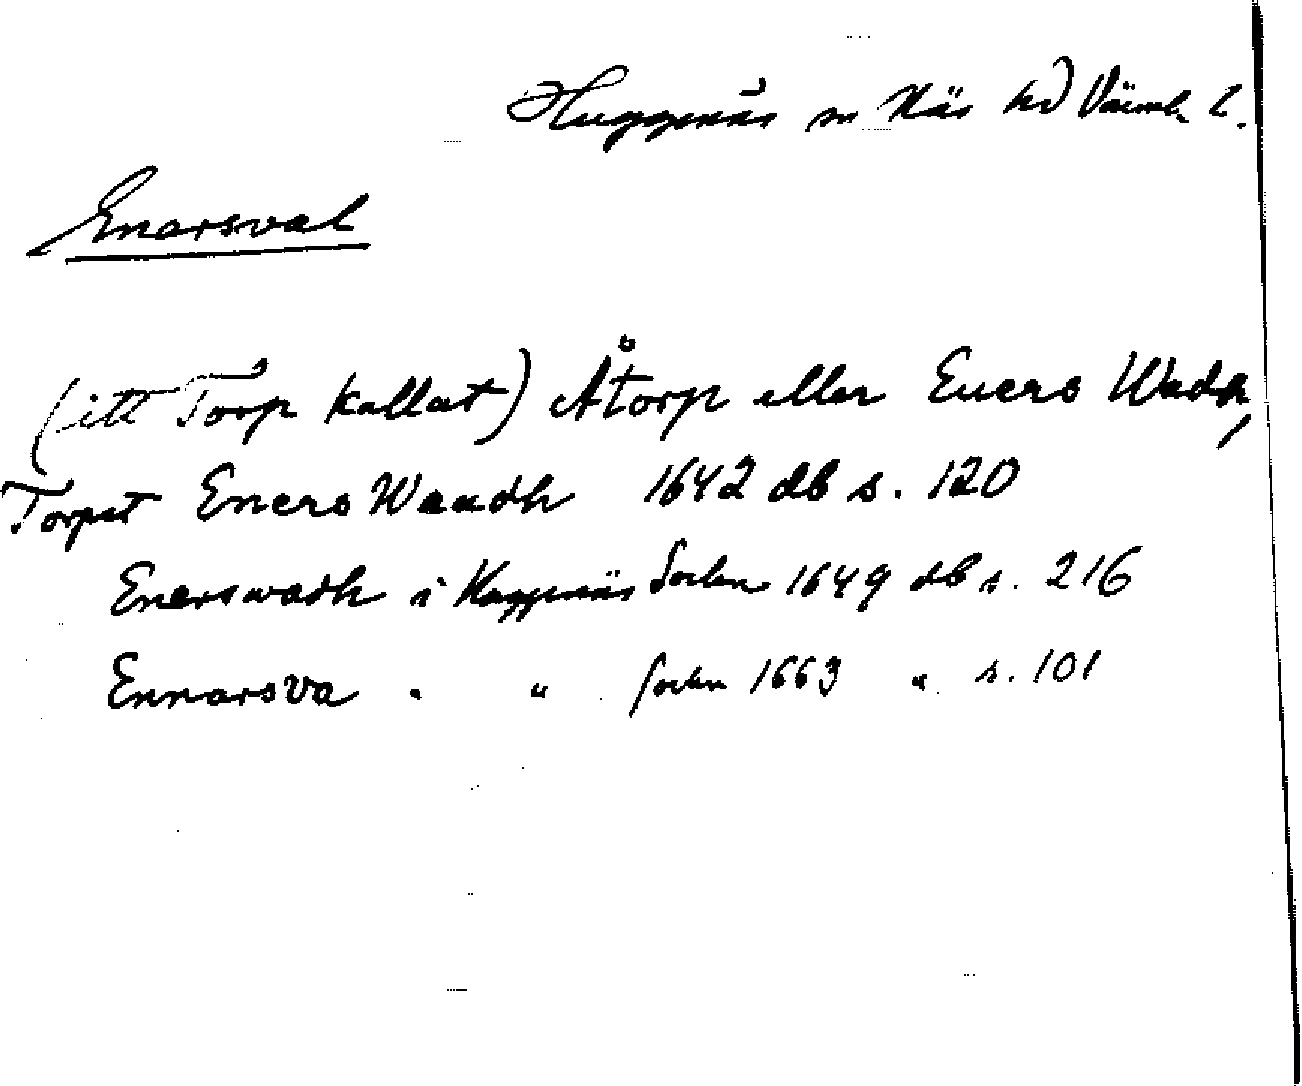 Huggenäs sn Näs hd Värml. l.
Enarsval
(itt Torp kallat) Åtorp eller Eners Wadh,
Torpet Eners Waadh 1642 db s. 120
Enerswadh i Haggenäs Sochn 1649 db s. 216
Ennarsva " " Sochn 1663 " s. 101